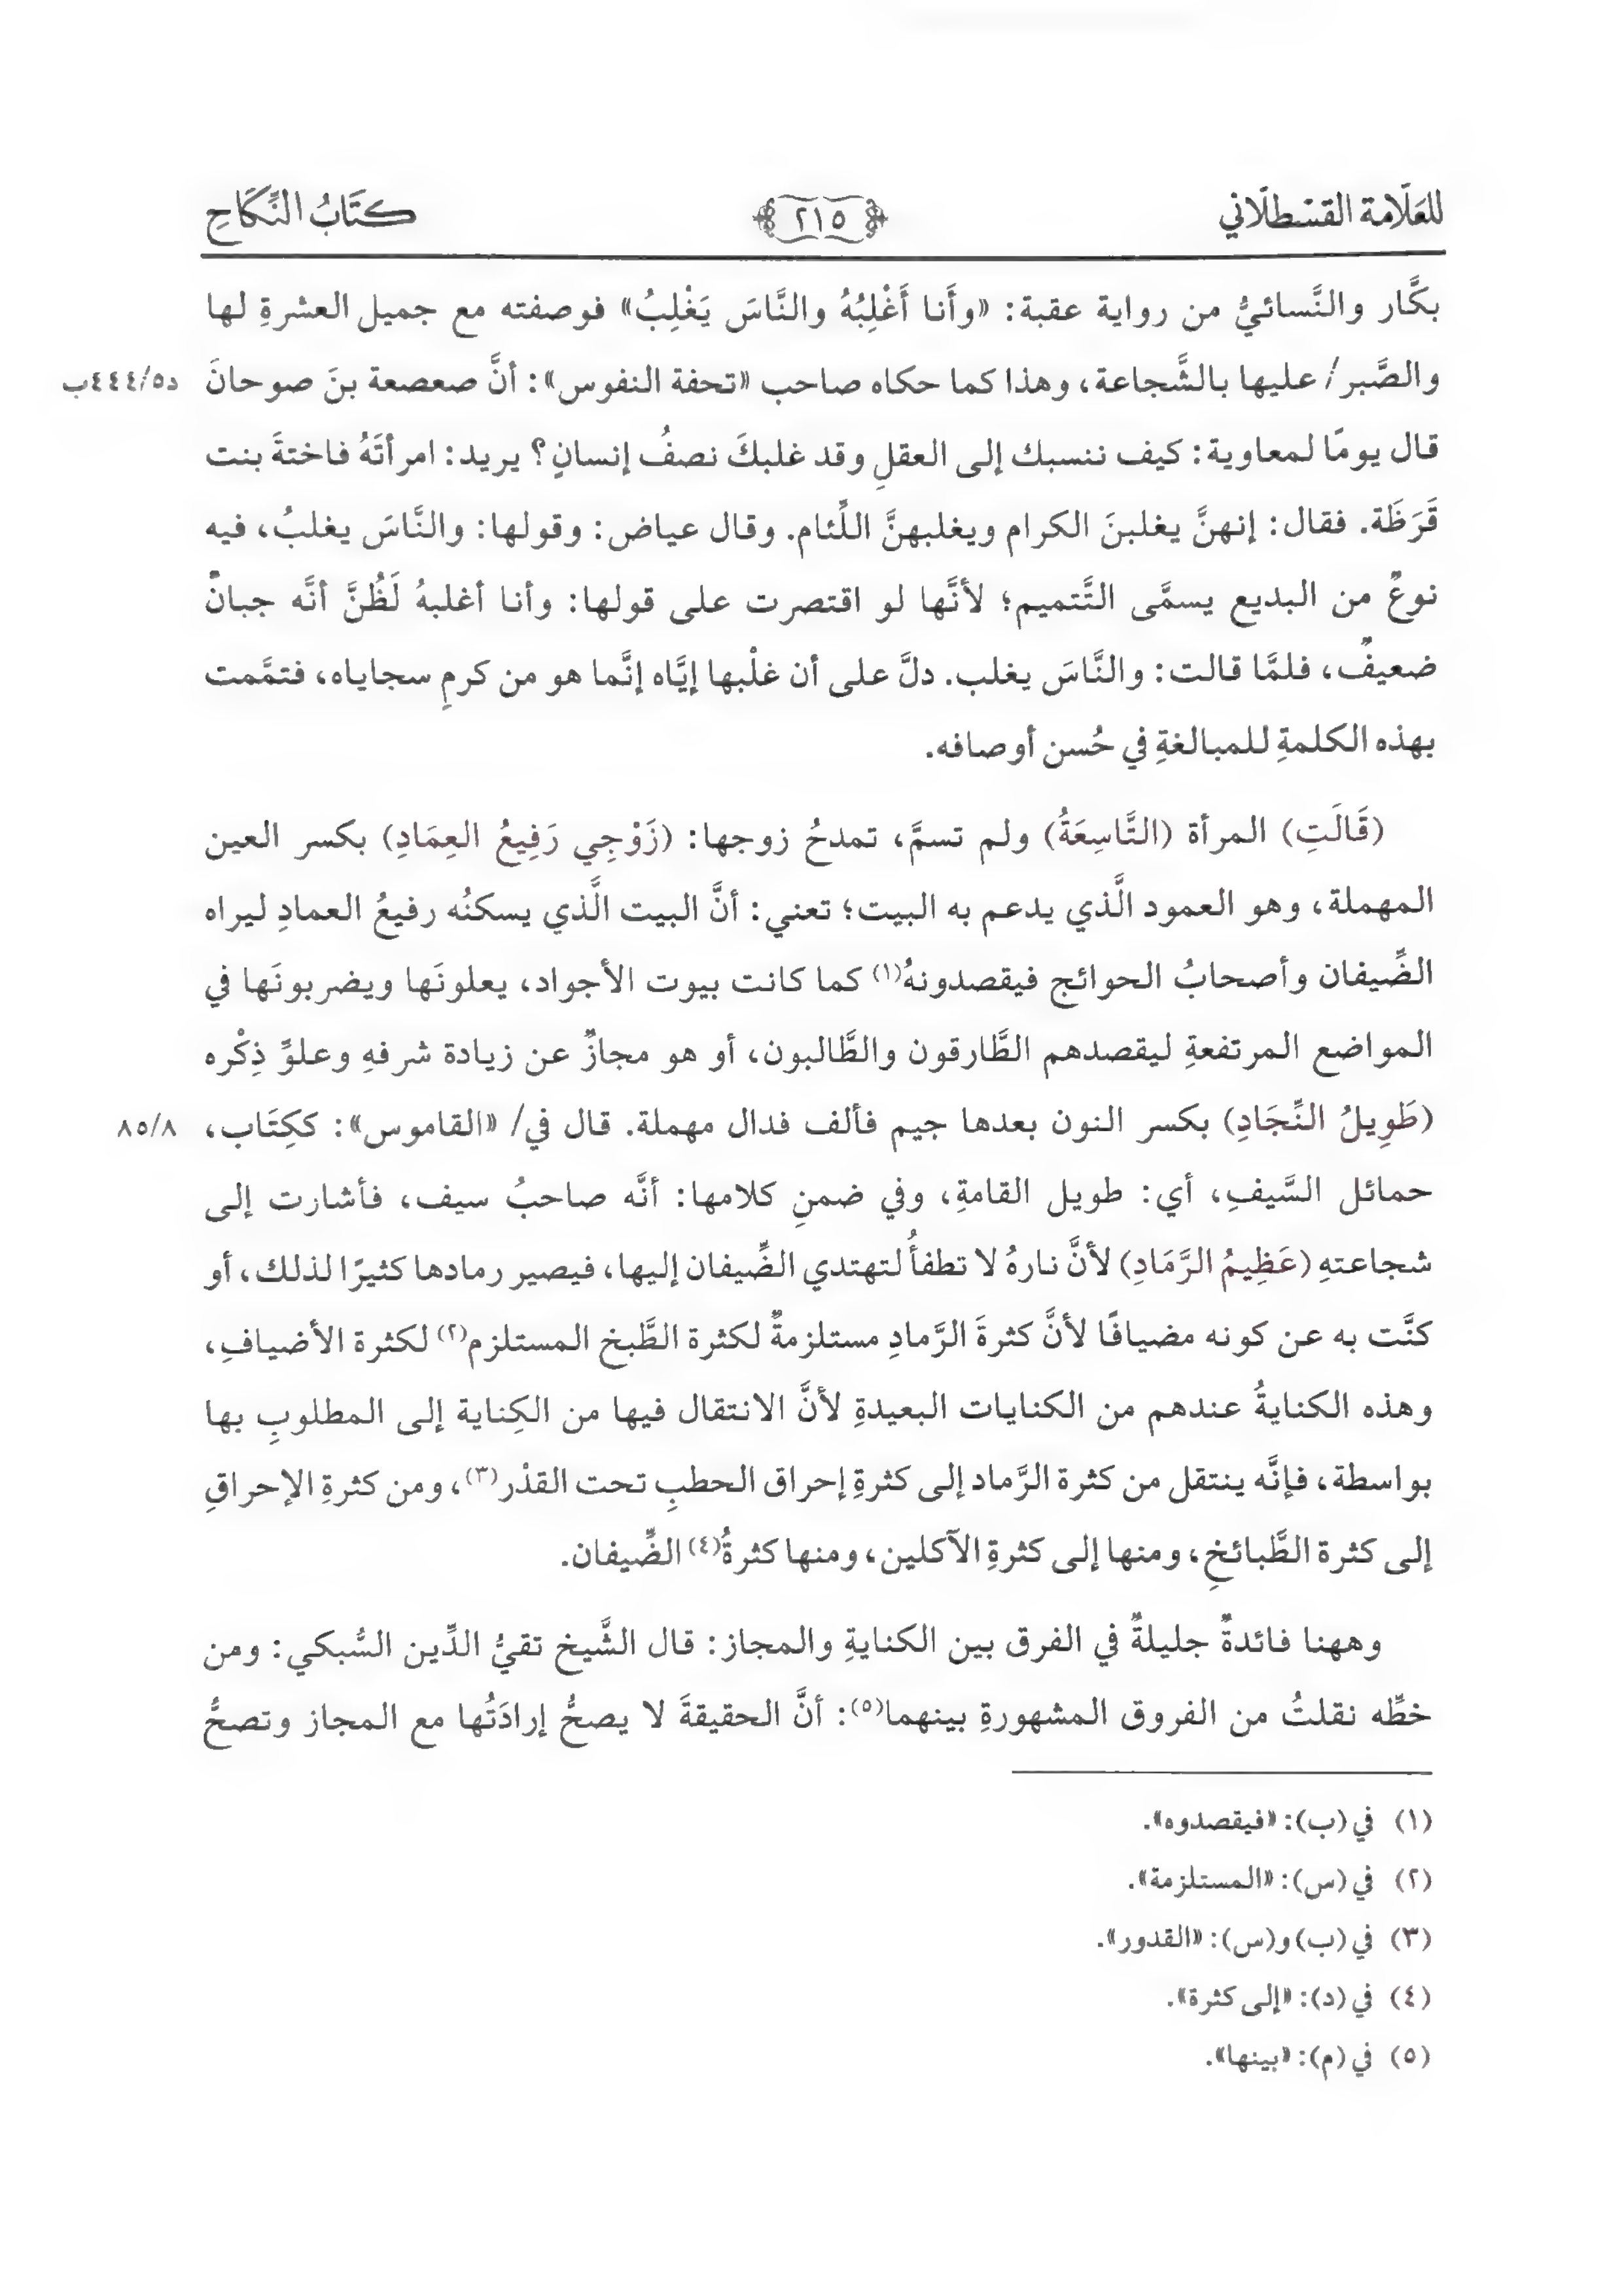 للعَلَّامة القسْطلّاني ٢١٥ كتَابُ النِّكَاحِ
بكَّار والنَّسائيُّ من رواية عقبة: «وأَنا أَغْلِبُهُ والنَّاسَ يَغْلِبُ» فوصفته مع جميل العشرةِ لها
والصَّبر/ عليها بالشَّجاعة، وهذا كما حكاه صاحب «تحفة النفوس»: أنَّ صعصعة بنَ صوحانَ د٤٤٤/٥ب
قال يومًا لمعاوية: كيف ننسبك إلى العقلِ وقد غلبكَ نصفُ إنسانٍ؟ يريد: امرأتَهُ فاختةَ بنت
قَرَظَة. فقال: إنهنَّ يغلبنَ الكرام ويغلبهنَّ اللِّئام. وقال عياض: وقولها: والنَّاسَ يغلبُ، فيه
نوعٌ من البديع يسمَّى التَّتميم؛ لأنَّها لو اقتصرت على قولها: وأنا أغلبهُ لَظُنَّ أنَّه جبانٌ
ضعيفٌ، فلمَّا قالت: والنَّاسَ يغلب. دلَّ على أن غلْبها إيَّاه إنَّما هو من كرمِ سجاياه، فتمَّمت
بهذه الكلمةِ للمبالغةِ في حُسن أوصافه.
(قَالَتِ) المرأة (التَّاسِعَةُ) ولم تسمَّ، تمدحُ زوجها: (زَوْجِي رَفِيعُ العِمَادِ) بكسر العين
المهملة، وهو العمود الَّذي يدعم به البيت؛ تعني: أنَّ البيت الَّذي يسكنُه رفيعُ العمادِ ليراه
الضِّيفان وأصحابُ الحوائج فيقصدونهُ(١) كما كانت بيوت الأجواد، يعلونَها ويضربونَها في
المواضع المرتفعةِ ليقصدهم الطَّارقون والطَّالبون، أو هو مجازٌ عن زيادة شرفهِ وعلوِّ ذِكْره
(طَوِيلُ النِّجَادِ) بكسر النون بعدها جيم فألف فدال مهملة. قال في/ «القاموس»: ككِتَاب، ٨٥/٨
حمائل السَّيفِ، أي: طويل القامةِ، وفي ضمنِ كلامها: أنَّه صاحبُ سيف، فأشارت إلى
شجاعتهِ (عَظِيمُ الرَّمَادِ) لأنَّ نارهُ لا تطفأُ لتهتدي الضِّيفان إليها، فيصير رمادها كثيرًا لذلك، أو
كنَّت به عن كونه مضيافًا لأنَّ كثرةَ الرَّمادِ مستلزمةٌ لكثرة الطَّبخ المستلزم(٢) لكثرة الأضيافِ،
وهذه الكنايةُ عندهم من الكنايات البعيدةِ لأنَّ الانتقال فيها من الكِناية إلى المطلوبِ بها
بواسطة، فإنَّه ينتقل من كثرة الرَّماد إلى كثرةِ إحراق الحطبِ تحت القدْر(٣)، ومن كثرةِ الإحراقِ
إلى كثرة الطَّبائخِ، ومنها إلى كثرةِ الآكلين، ومنها كثرةُ(٤) الضِّيفان.
وههنا فائدةٌ جليلةٌ في الفرق بين الكنايةِ والمجاز: قال الشَّيخ تقيُّ الدِّين السُّبكي: ومن
خطِّه نقلتُ من الفروق المشهورةِ بينهما(٥): أنَّ الحقيقةَ لا يصحُّ إرادَتُها مع المجاز وتصحُّ
(١) في (ب): «فيقصدوه».
(٢) في (س): «المستلزمة».
(٣) في (ب) و(س): «القدور».
(٤) في (د): «إلى كثرة».
(٥) في (م): «بينها».